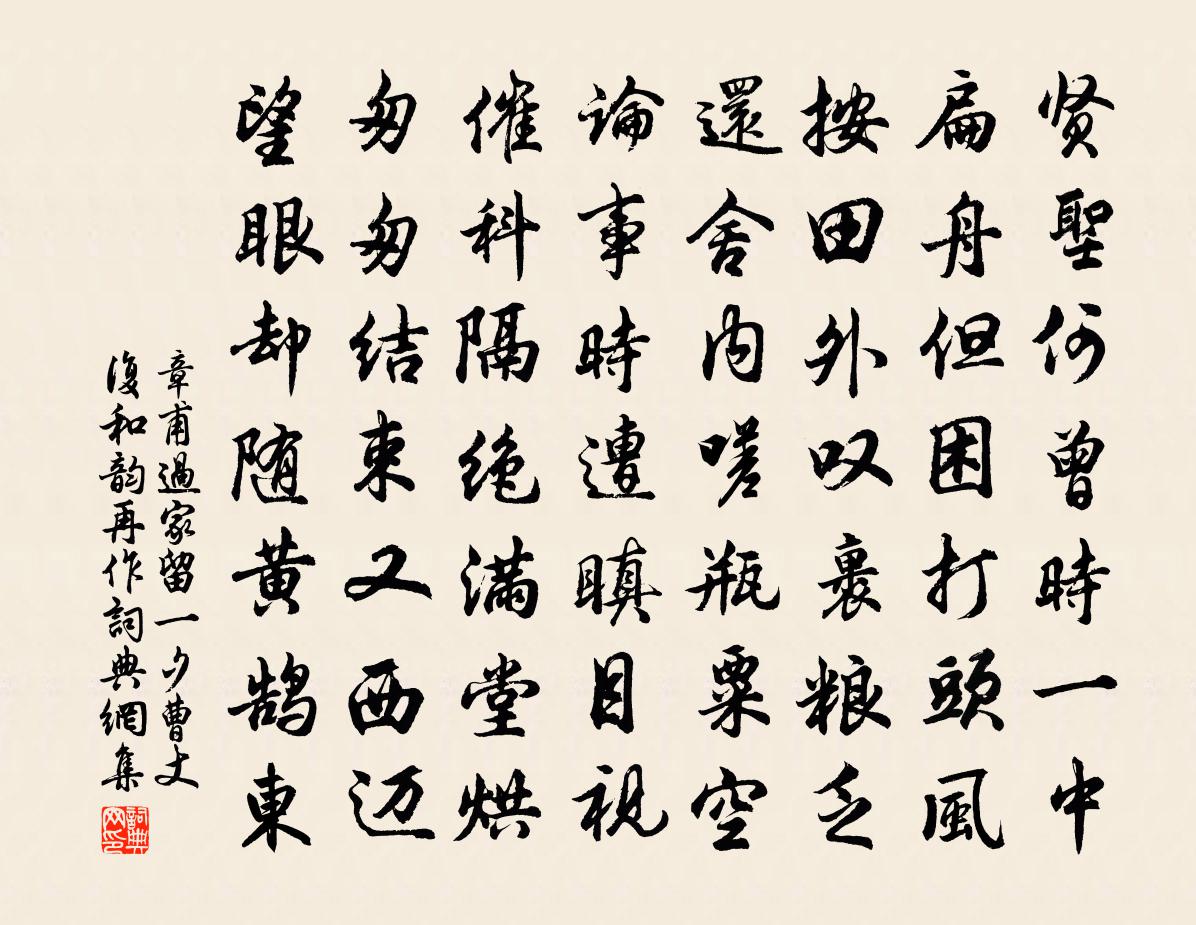 贤聖何曾時一中
扁舟但困打頭風
按田外叹裹粮乏
還舍内嗟瓶粟空
論事時遭瞋目視
催科隔绝满堂烘
匆匆结束又西迈
望眼却随黄鹄東
章甫過家留一夕曹丈
復和韵再作詞典網集
詞典网印